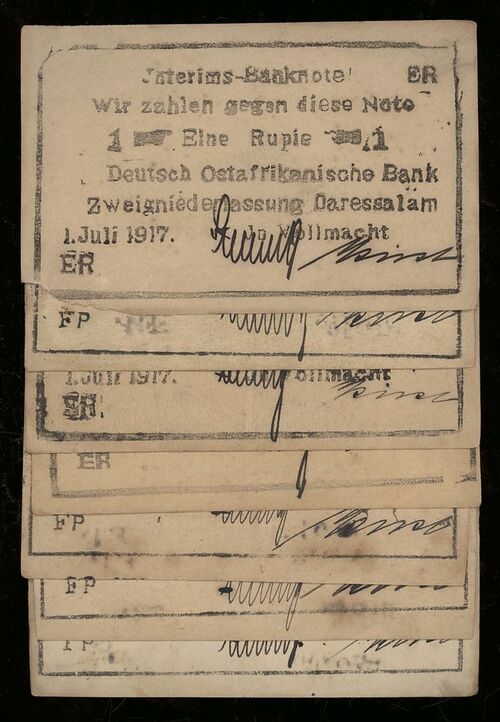 Interims-Banknote ER
Wir zahlen gegen diese Note
1 Eine Rupie 1
Deutsch Ostafrikanische Bank
Zweigniederlassung Daressalam
1. Juli 1917. In Vollmacht
ER
FP
1. Juli 1917. Vollmacht
ER
ER
FP
FP
FP